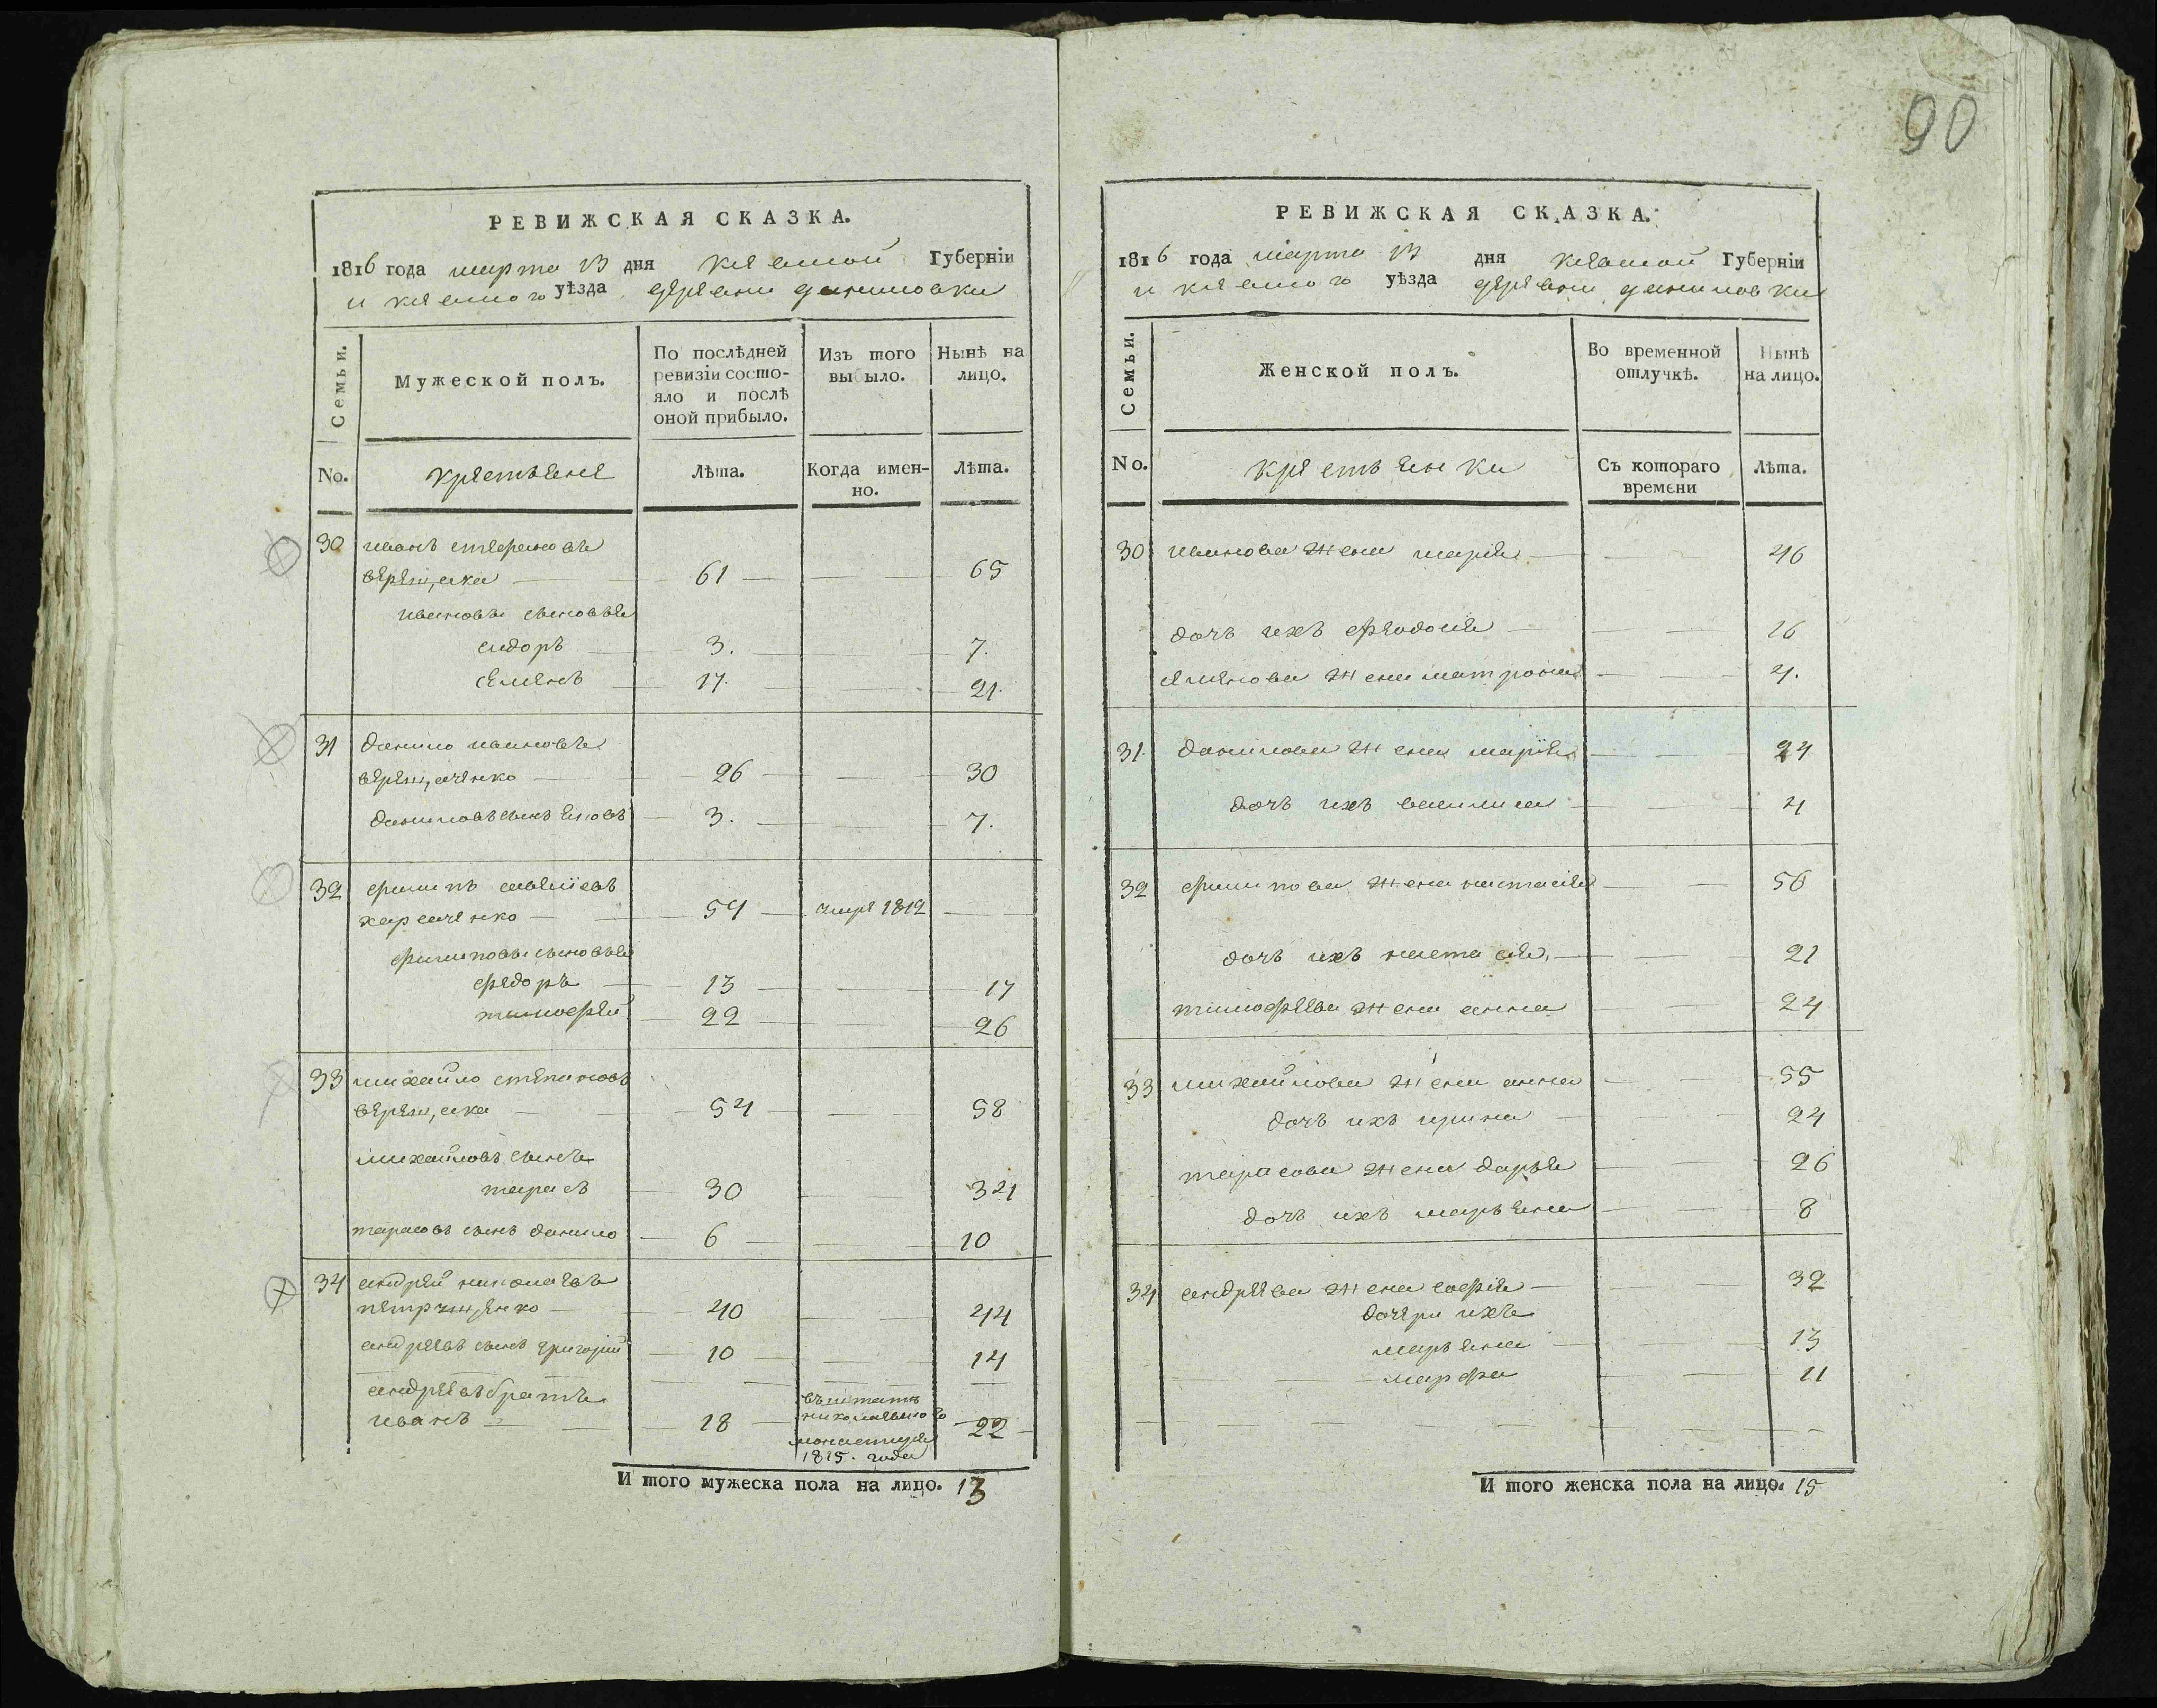 90
РЕВИЖСКАЯ СКАЗКА.
1816 года марта 13 дня Киевской Губерніи
и киевского уѣзда деревни даниловки
Семьи.
Мужеской полъ.
По послѣдней ревизіи состо-
яло и послѣ
оной прибыло.
Изъ того выбыло.
Нынѣ на лицо.
No. крестьяне Лѣта. Когда имен-
но. Лѣта.
30 иванъ
верещака 61 65
ивановы сыновья
сидоръ 3. 7.
семенъ 17. 21.
31 данило ивановъ
верещаченко 26 30
даниловъ сынъ 3. 7.
32 филипъ
харсаченко 54 умре 1812
филиповы сыновья
федоръ 13 17
тимофей 22 26
33 михайло степановъ
верещака 54 58
михайловъ сынъ
тарасъ 30 34
тарасовъ сынъ данило 6 10
34 андрей николаевъ
40 44
андреевъ сынъ григорий 10 14
андреевъ братъ
иванъ 18 22
николаевского
монастыря
1815. года
И того мужеска пола на лицо. 13
РЕВИЖСКАЯ СКАЗКА.
1816 года марта 13 дня Киевской Губерніи
и киевского уѣзда деревни даниловки
Семьи.
Женской полъ.
Во временной отлучкѣ.
Нынѣ на лицо.
No. крестьянки Съ котораго
времени Лѣта.
30 иванова жена марія 46
дочъ ихъ феодосия 16
семенова жена матрона
31. данилова жена марїя 24
дочъ ихъ василиса 4
32 филипова жена настасия 56
дочъ ихъ настасия 21
тимофеева жена анна 24
33 михайлова жена анна 55
дочъ ихъ ирина 24
тарасова жена дарья 26
дочъ ихъ марьяна 8
34 андреева жена софия 32
дочери ихъ
марьяна 13
марфа 11
И того женска пола на лицо. 15